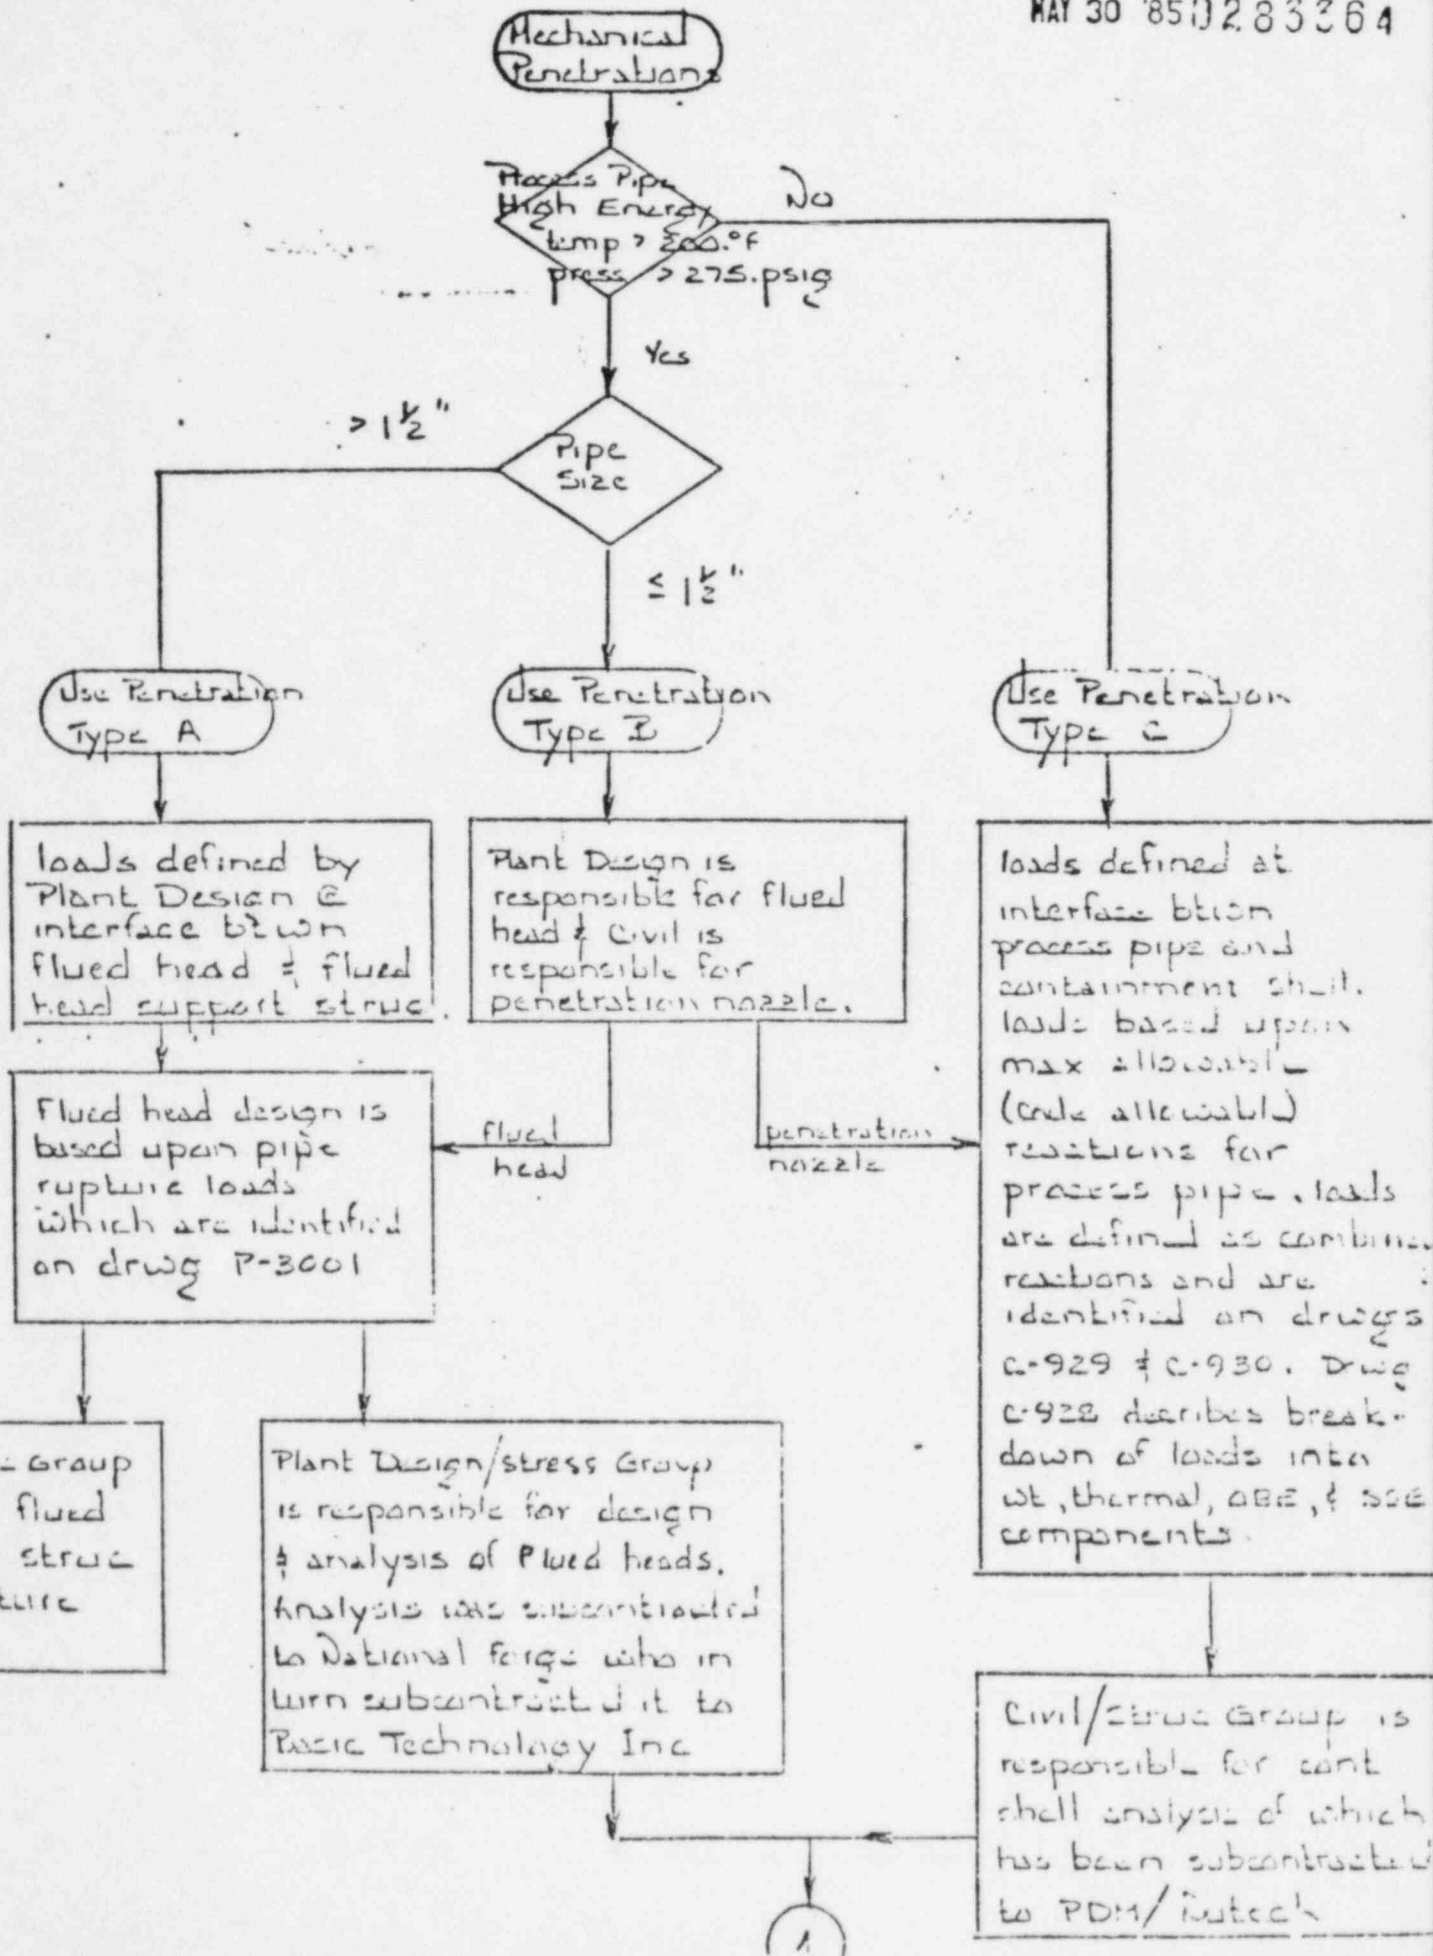 MAY 30 '85 0283364
Mechanical
Penetrations
Process Pipe
High Energy
temp > 200.°F
press > 275.psig
No
Yes
> 1 1/2"
Pipe
Size
≤ 1 1/2"
Use Penetration
Type A
Use Penetration
Type B
Use Penetration
Type C
loads defined by
Plant Design @
interface btwn
flued head & flued
head support struc.
Plant Design is
responsible for flued
head & Civil is
responsible for
penetration nozzle.
loads defined at
interface btwn
process pipe and
containment shell.
loads based upon
max allowable
(code allowable)
reactions for
process pipe. loads
are defined as combined
reactions and are
identified on drwgs
C-929 & C-930. Drwg
C-928 decribes break-
down of loads into
wt, thermal, OBE, & SSE
components.
Flued head design is
based upon pipe
rupture loads
which are identified
on drwg P-3001
flued
head
penetration
nozzle
Group
flued
struc
ture
Plant Design/stress Group
is responsible for design
& analysis of flued heads.
Analysis was subcontracted
to National Forge who in
turn subcontracted it to
Basic Technology Inc
Civil/Struc Group is
responsible for cont
shell analysis of which
has been subcontracted
to PDM/
1